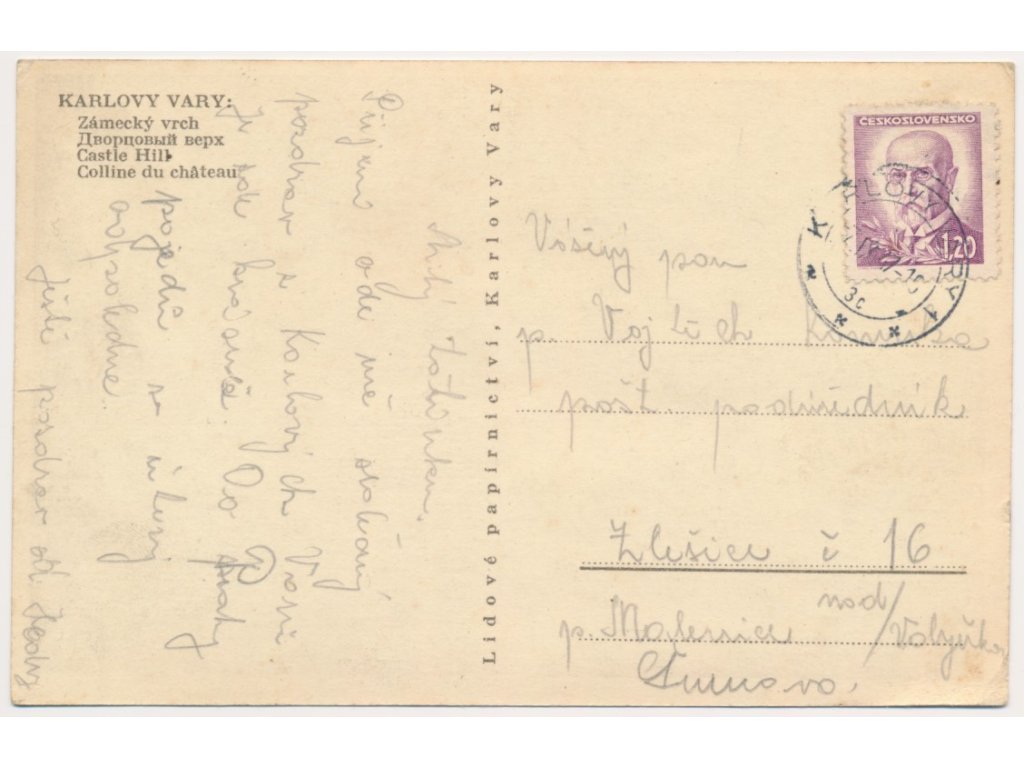 KARLOVY VARY:
Zámecký vrch
Дворцовый верх
Castle Hill
Colline du château
Milý tatínku.
Přijmi ode mě srdečný
pozdrav z Karlových Varů
Je zde krásně. Do Prahy
pojedu v úterý
odpoledne
Ještě pozdrav od
Lidové papírnictví, Karlovy Vary
ČESKOSLOVENSKO
1,20
KARLOVY VARY
3c
Vážený pan
p. Vojtěch
pošt. podúředník
Zlešice č 16
p. Malenice nad/